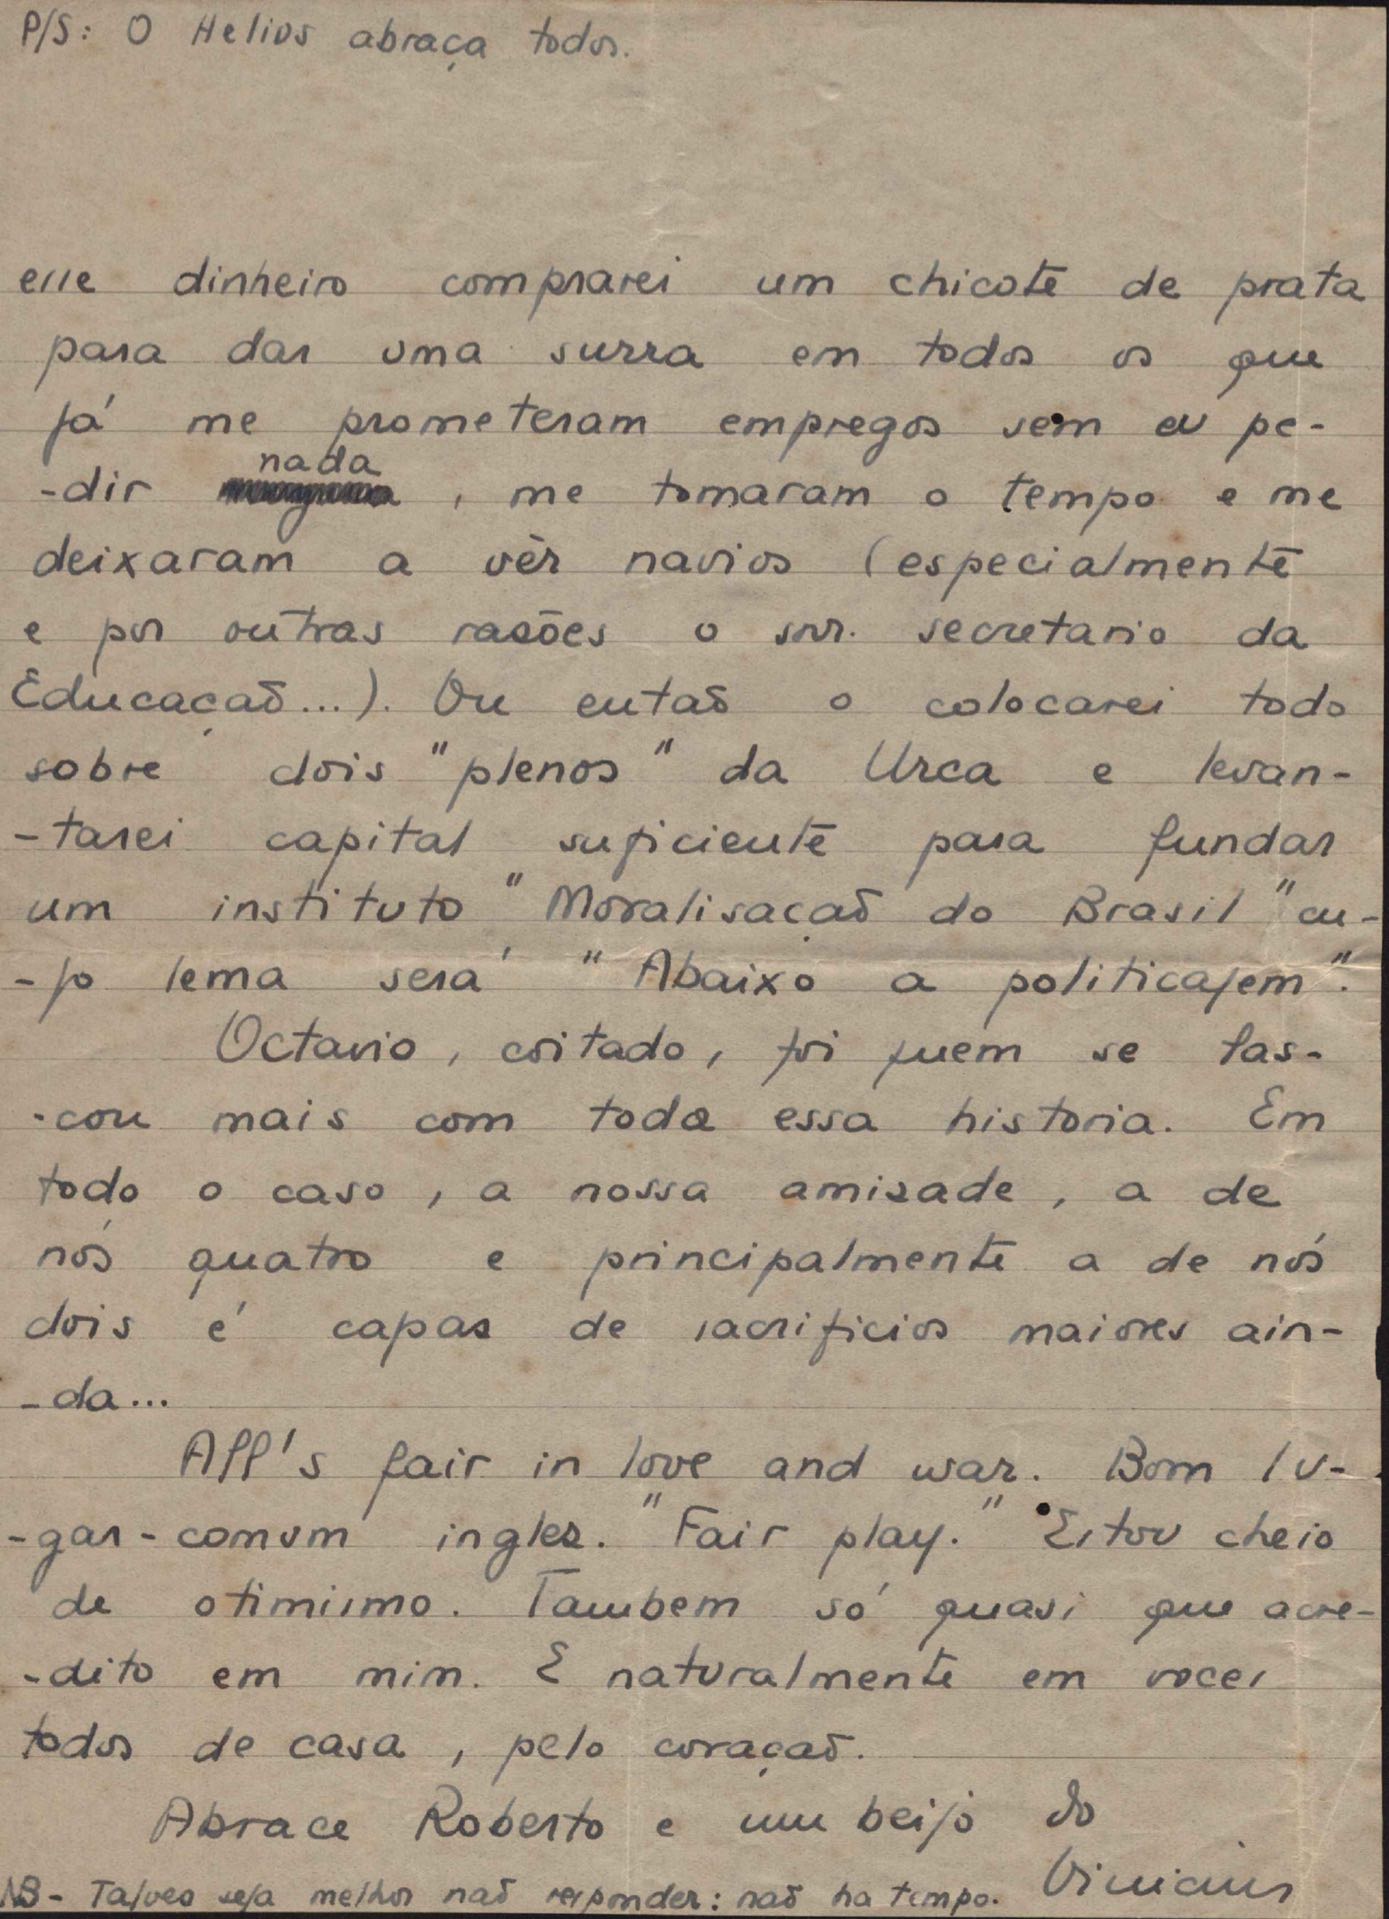 P/S: O Helios abraça todos.
esse dinheiro comprarei um chicote de prata
para dar uma surra em todos os que
já me prometeram empregos sem eu pe-
-dir nada, me tomaram o tempo e me
deixaram a vêr navios (especialmente
e por outras rasões o snr. secretario da
Educação...). Ou então o colocarei todo
sobre dois "plenos" da Urca e levan-
-tarei capital suficiente para fundar
um instituto "Moralisação do Brasil" cu-
-jo lema será "Abaixo a politicajem".
Octavio, coitado, foi quem se las-
-cou mais com toda essa historia. Em
todo o caso, a nossa amizade, a de
nós quatro e principalmente a de nós
dois é capaz de sacrificios maiores ain-
-da...
All's fair in love and war. Bom lu-
-gar-comum inglez. "Fair play." Estou cheio
de otimismo. Tambem só quasi que acre-
-dito em mim. E naturalmente em voces
todos de casa, pelo coração.
Abrace Roberto e um beijo do
Vinicius
NB - Talvez seja melhor não responder: não ha tempo.